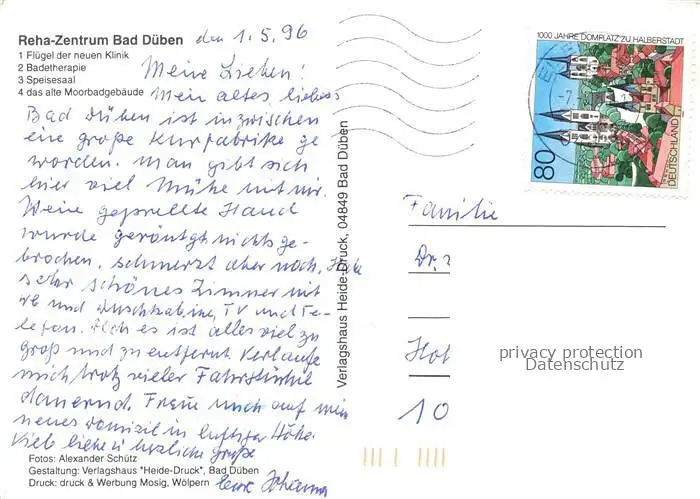 Reha-Zentrum Bad Düben
den 1.5.96
1 Flügel der neuen Klinik
2 Badetherapie
3 Speisesaal
4 das alte Moorbadgebäude
Meine Lieben!
Mein altes, liebes
Bad Düben ist inzwischen
eine große Kurfabrik ge
worden. Man gibt sich
hier viel Mühe mit mir.
Meine geprellte Hand
wurde geröntgt nichts ge-
brochen, schmerzt aber noch. Habe
sehr schönes Zimmer mit
und Duschkabine, TV und Te-
lefon. Ach es ist alles viel zu
groß und zu entfernt. Verlaufe
mich trotz vieler Fahrstühle
dauernd. Freue mich auf mein
neues Domizil in luftiger Höhe.
Viele liebe u herzliche Grüße
Eure Johanna
Fotos: Alexander Schütz
Gestaltung: Verlagshaus "Heide-Druck", Bad Düben
Druck: druck & Werbung Mosig, Wölpern
Verlagshaus Heide-Druck, 04849 Bad Düben
1000 JAHRE DOMPLATZ ZU HALBERSTADT
80
DEUTSCHLAND
Familie
Dr.
Hol
10
privacy protection
Datenschutz